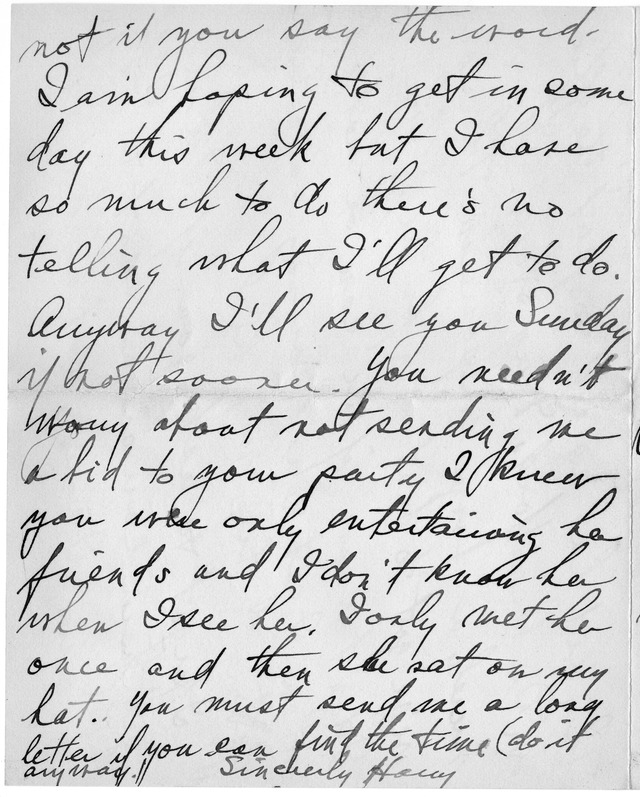 not if you say the word.
I am hoping to get in some
day this week but I have
so much to do there's no
telling what I'll get to do.
Anyway I'll see you Sunday
if not sooner. You needn't
worry about not sending me
a bid to your party I knew
you were only entertaining her
friends and I don't know her
when I see her. I only met her
once and then she sat on my
hat.. You must send me a long
letter if you can find the time (do it
anyway!! Sincerely Harry